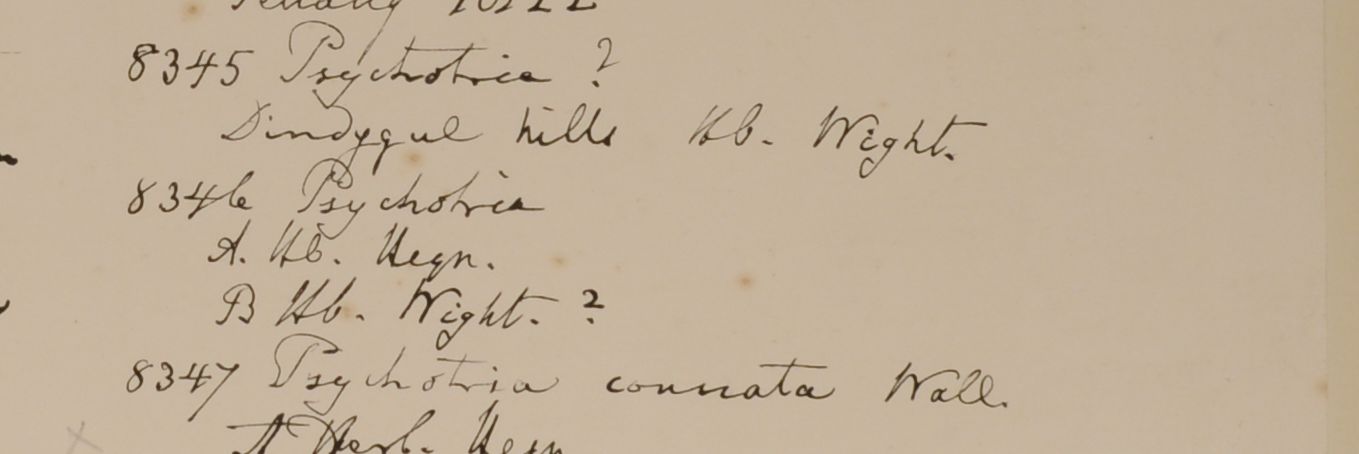 Penang 1822
8345 Psychotria ?
Dindygul hills Hb. Wight.
8346 Psychotria
A. Hb. Heyn.
B Hb. Wight. ?
8347 Psychotria connata Wall.
A Herb. Heyn